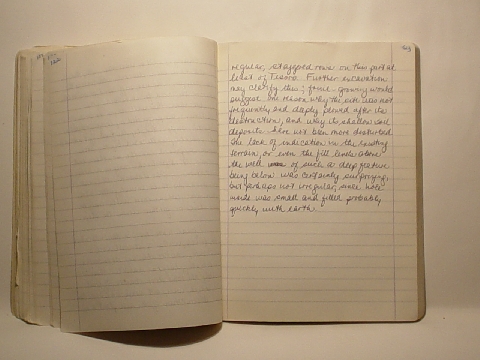 regular, staggered rows on this part at
least of Tesoro. Further excavation
may clarify this; fruit-growing would
suggest one reason why the site was not
frequently and deeply plowed after its
destruction, and why its shallow soil
deposits have not been more disturbed.
The lack of indication in the existing
terrain, or even the fill levels above
the well of such a deep feature
being below was certainly surprising,
but perhaps not irregular, since hole
made was small and filled probably
quickly with earth.